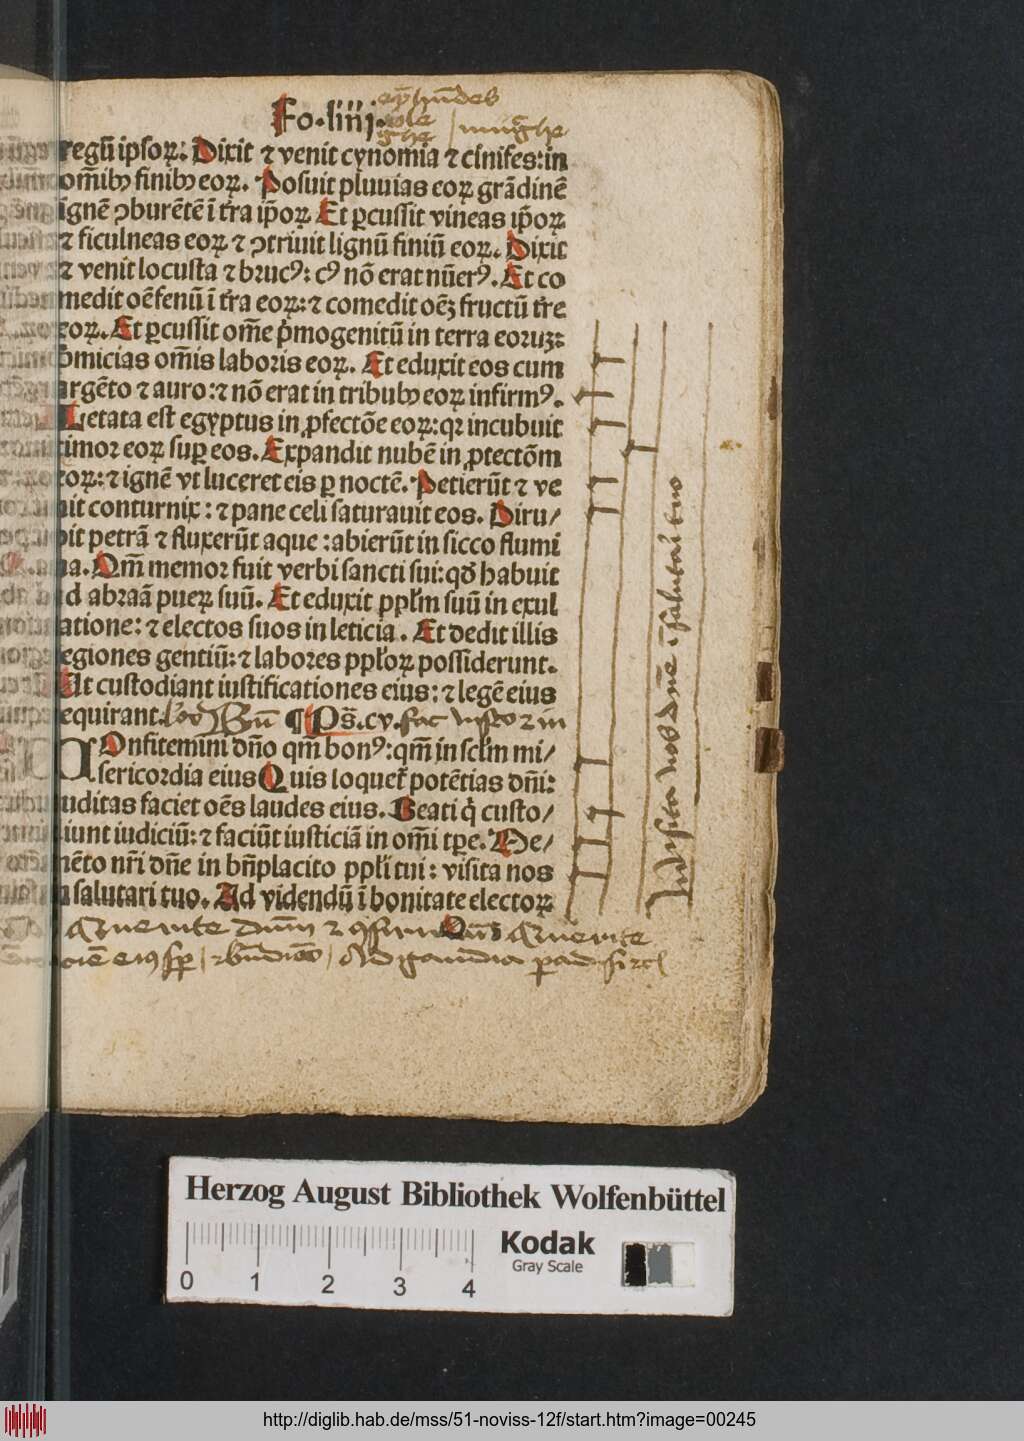 Fo.liiij.
regū ipsoꝝ: Dixit ⁊ venit cynomia ⁊ cinifes: in
om̄ibꝰ finibꝰ eoꝝ. Posuit pluuias eoꝝ grādinē
ignē ↄburētē ī tr̄a ip̄oꝝ Et ꝑcussit vineas ip̄oꝝ
⁊ ficulneas eoꝝ ⁊ ↄtriuit lignū finiū eoꝝ. Dixit
⁊ venit locusta ⁊ brucꝰ: cꝰ nō erat nūerꝰ. Et co
medit oē fenū ī tr̄a eoꝝ: ⁊ comedit oēꝫ fructū tr̄e
eoꝝ. Et ꝑcussit om̄e p̄mogenitū in terra eoruꝫ:
p̄micias om̄is laboris eoꝝ. Et eduxit eos cum
argēto ⁊ auro: ⁊ nō erat in tribubꝰ eoꝝ infirmꝰ.
Letata est egyptus in ꝓfectōe eoꝝ: qꝛ incubuit
timor eoꝝ suꝑ eos. Expandit nubē in ꝓtectōm
eoꝝ: ⁊ ignē vt luceret eis ꝑ noctē. Petierūt ⁊ ve
nit conturnix: ⁊ pane celi saturauit eos. Diru/
pit petrā ⁊ fluxerūt aque: abierūt in sicco flumi
na. Qm̄ memor fuit verbi sancti sui: qd̄ habuit
ad abraā pueꝝ suū. Et eduxit ppl̄m suū in exul
tatione: ⁊ electos suos in leticia. Et dedit illis
regiones gentiū: ⁊ labores ppl̄oꝝ possiderunt.
Ut custodiant iustificationes eius: ⁊ legē eius
requirant. ¶ Ps̄. cv.
Onfitemini dn̄o qm̄ bonꝰ: qm̄ in scl̄m mi/
sericordia eius Quis loquet̄ potētias dn̄i:
auditas faciet oēs laudes eius. Beati q̇ custo/
diunt iudiciū: ⁊ faciūt iusticiā in om̄i tꝑe. Me/
mēto nr̄i dn̄e in bn̄placito ppl̄i tui: visita nos
in salutari tuo. Ad videndū ī bonitate electoꝝ
visita nos dn̄e ī salutari tuo
Herzog August Bibliothek Wolfenbüttel
0 1 2 3 4
Kodak
Gray Scale
http://diglib.hab.de/mss/51-noviss-12f/start.htm?image=00245